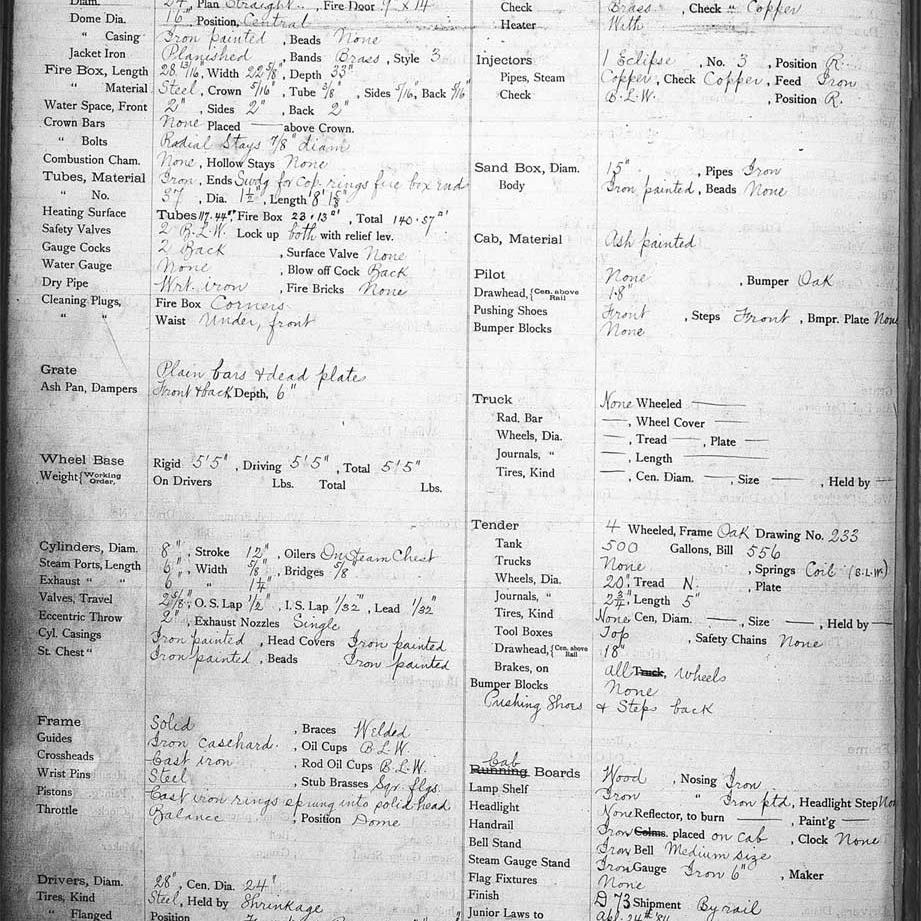 Diam. 24" Plan Straight. , Fire Door 9 x 14
Dome Dia. 16 , Position, Central
" Casing Iron painted , Beads None
Jacket Iron Planished , Bands Brass , Style 3
Fire Box, Length 28 13/16", Width 22 5/8" , Depth 33"
" Material Steel, Crown 5/16" , Tube 3/8" , Sides 5/16, Back 5/16
Water Space, Front 2" , Sides 2" , Back 2"
Crown Bars None Placed — above Crown.
" Bolts Radial Stays 7/8" diam
Combustion Cham. None , Hollow Stays None
Tubes, Material Iron , Ends Swdg for cop. rings fire box end
" No. 57 , Dia. 1½" , Length 8' 1
Heating Surface Tubes 117.44 Fire Box 23.13 , Total 140.57
Safety Valves 2 B.L.W. Lock up both with relief lev.
Gauge Cocks 2 Back , Surface Valve None
Water Gauge None , Blow off Cock Back
Dry Pipe Wrt. iron , Fire Bricks None
Cleaning Plugs, Fire Box Corners
" " Waist Under, front
Grate Plain bars & dead plate
Ash Pan, Dampers Front & back Depth, 6"
Wheel Base Rigid 5'5" , Driving 5'5" , Total 5'5"
Weight {Working Order, On Drivers Lbs. Total Lbs.
Cylinders, Diam. 8" , Stroke 12" , Oilers On Steam Chest
Steam Ports, Length 6" , Width 5/8" , Bridges 5/8
Exhaust " " 6 " 1¼"
Valves, Travel 2 5/8", O. S. Lap ½" , I. S. Lap 1/32 , Lead 1/32"
Eccentric Throw 2" , Exhaust Nozzles Single
Cyl. Casings Iron painted , Head Covers Iron painted
St. Chest " Iron painted , Beads Iron painted
Frame Solid , Braces Welded
Guides Iron casehard. , Oil Cups B.L.W.
Crossheads Cast iron , Rod Oil Cups B.L.W.
Wrist Pins Steel , Stub Brasses Sqr. flgs.
Pistons Cast iron rings sprung into solid head
Throttle Balance , Position Dome
Drivers, Diam. 28" , Cen. Dia. 24"
Tires, Kind Steel, Held by Shrinkage
" Flanged Position
Check Brass , Check " Copper
Heater With
Injectors 1 Eclipse , No. 3 , Position R.
Pipes, Steam Copper, Check Copper, Feed Iron
Check B.L.W. , Position R.
Sand Box, Diam. 15" , Pipes Iron
Body Iron painted, Beads None
Cab, Material Ash painted
Pilot None , Bumper Oak
Drawhead, {Cen. above Rail 18"
Pushing Shoes Front , Steps Front , Bmpr. Plate None
Bumper Blocks None
Truck None Wheeled —
Rad. Bar — , Wheel Cover —
Wheels, Dia. — , Tread — , Plate —
Journals, " — , Length —
Tires, Kind — , Cen. Diam. — , Size — , Held by —
Tender 4 Wheeled, Frame Oak Drawing No. 233
Tank 500 Gallons, Bill 556
Trucks None , Springs Coil (B.L.W.)
Wheels, Dia. 20", Tread N. , Plate
Journals, " 2¾" Length 5"
Tires, Kind None Cen, Diam. — , Size — , Held by —
Tool Boxes Top , Safety Chains None
Drawhead, {Cen. above Rail 18"
Brakes, on All Truck, Wheels
Bumper Blocks None
Pushing Shoes & Steps back
Cab
Running Boards Wood , Nosing Iron
Lamp Shelf Iron " Iron ptd, Headlight Step None
Headlight None Reflector, to burn — , Paint'g —
Handrail Iron Colms. placed on cab , Clock None
Bell Stand Iron Bell Medium size
Steam Gauge Stand Iron Gauge Iron 6" , Maker
Flag Fixtures None
Finish D 73 Shipment By rail
Junior Laws to Apl. 24th '84